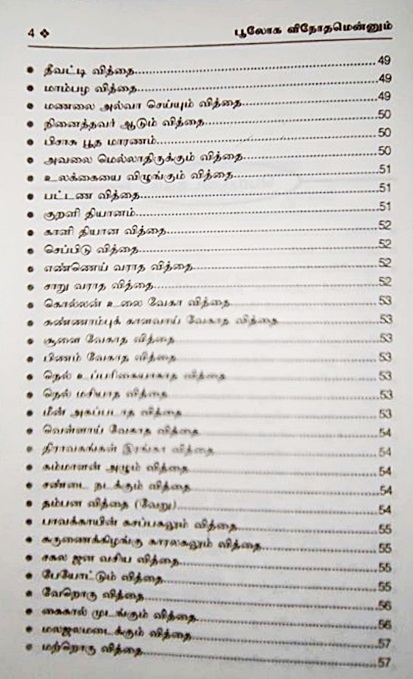 4 ❖ பூலோக விநோதமென்னும்
● தீவட்டி வித்தை 49
● மாம்பழ வித்தை 49
● மணலை அல்வா செய்யும் வித்தை 49
● நினைத்தவர் ஆடும் வித்தை 50
● பிசாசு பூத மாரணம் 50
● அவலை மெல்லாதிருக்கும் வித்தை 50
● உலக்கையை விழுங்கும் வித்தை 51
● பட்டண வித்தை 51
● குறளி தியானம் 51
● காளி தியான வித்தை 52
● செப்பிடு வித்தை 52
● எண்ணெய் வராத வித்தை 52
● சாறு வராத வித்தை 52
● கொல்லன் உலை வேகா வித்தை 53
● சுண்ணாம்புக் காளவாய் வேகாத வித்தை 53
● சூளை வேகாத வித்தை 53
● பிணம் வேகாத வித்தை 53
● நெல் உப்பரிகையாகாத வித்தை 53
● நெல் மசியாத வித்தை 53
● மீன் அகப்படாத வித்தை 53
● வெள்ளாய் வேகாத வித்தை 54
● திராவகங்கள் இரங்கா வித்தை 54
● கம்மாளன் அழும் வித்தை 54
● சண்டை நடக்கும் வித்தை 54
● தம்பன வித்தை (வேறு) 54
● பாவக்காயின் கசப்பகலும் வித்தை 55
● கருணைக்கிழங்கு காரலகலும் வித்தை 55
● சகல ஜன வசிய வித்தை 55
● பேயோட்டும் வித்தை 55
● வேறொரு வித்தை 56
● கைகால் முடங்கும் வித்தை 56
● மலஜலமடைக்கும் வித்தை 57
● மற்றொரு வித்தை 57